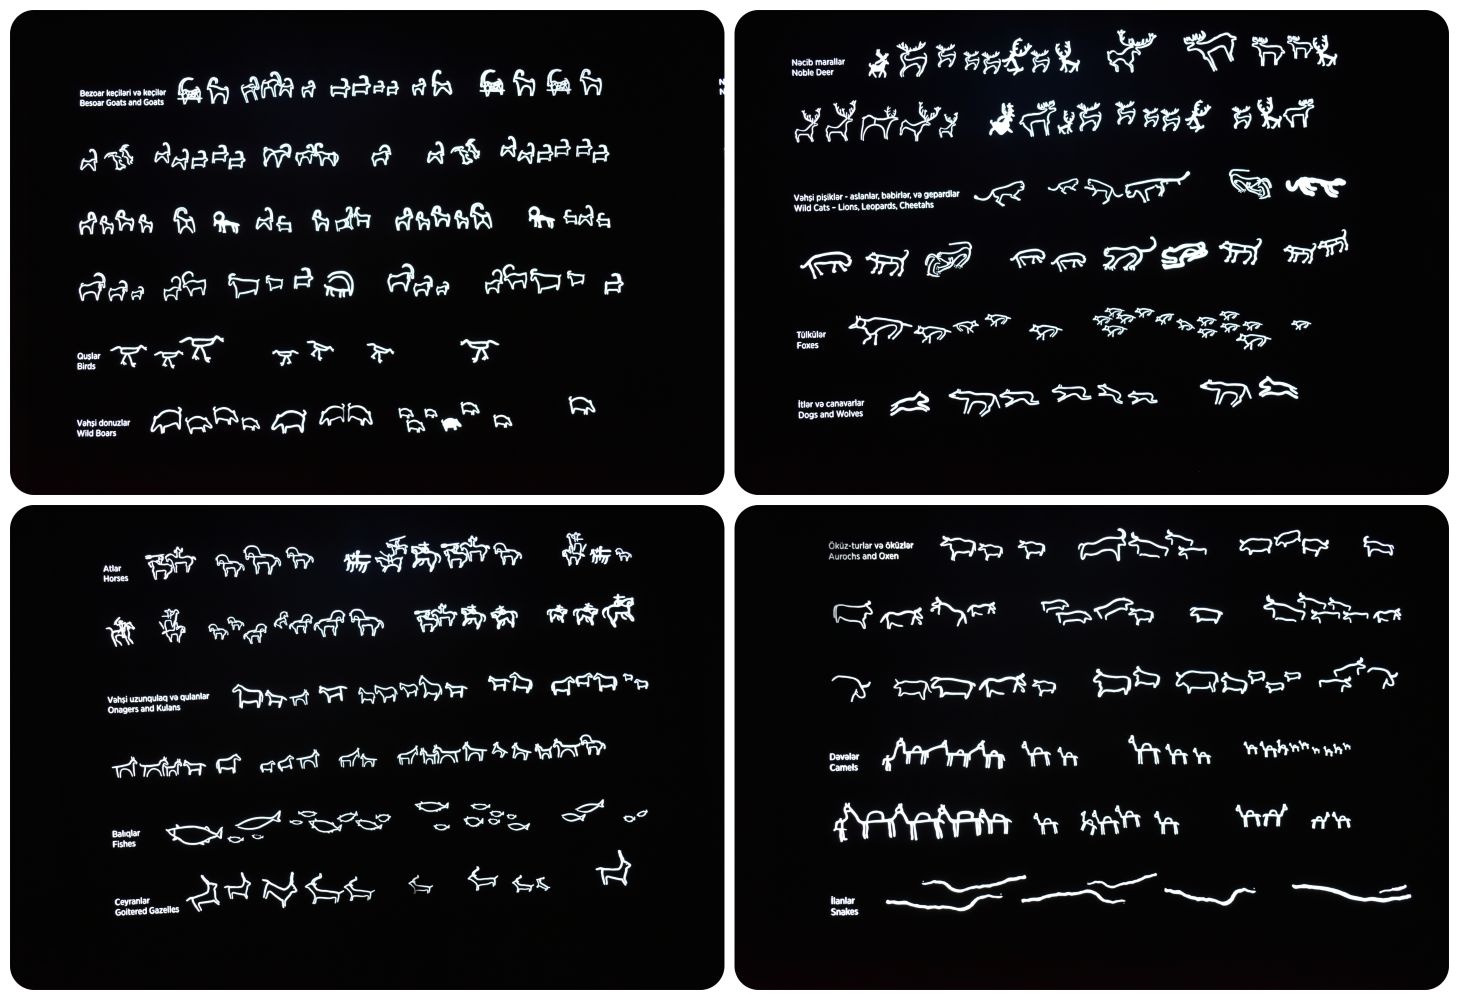 Bezoar keçiləri və keçilər
Besoar Goats and Goats
Quşlar
Birds
Vəhşi donuzlar
Wild Boars
Nəcib marallar
Noble Deer
Vəhşi pişiklər - aslanlar, bəbirlər, və gepardlar
Wild Cats – Lions, Leopards, Cheetahs
Tülkülər
Foxes
İtlər və canavarlar
Dogs and Wolves
Atlar
Horses
Vəhşi uzunqulaq və qulanlar
Onagers and Kulans
Balıqlar
Fishes
Ceyranlar
Goitered Gazelles
Öküz-turlar və öküzlər
Aurochs and Oxen
Dəvələr
Camels
İlanlar
Snakes